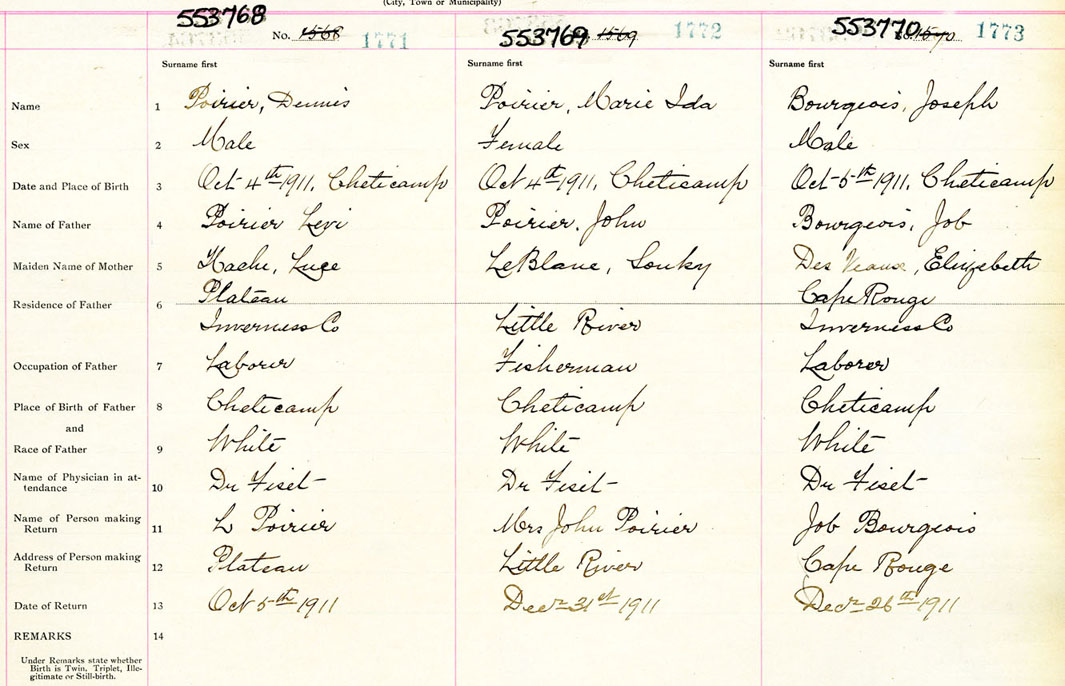 (City, Town or Municipality)
553768 No. 1568 1771
553769 1569 1772
553770 No. 1570 1773
Surname first Surname first Surname first
Name 1 Poirier, Dennis Poirier, Marie Ida Bourgeois, Joseph
Sex 2 Male Female Male
Date and Place of Birth 3 Oct 4th 1911, Cheticamp Oct 4th 1911, Cheticamp Oct 5th 1911, Cheticamp
Name of Father 4 Poirier Levi Poirier, John Bourgeois, Job
Maiden Name of Mother 5 Luce LeBlanc, Des Veaux, Elizebeth
Residence of Father 6 Plateau Cape Rouge
Inverness Co Little River Inverness Co
Occupation of Father 7 Laborer Fisherman Laborer
Place of Birth of Father 8 Cheticamp Cheticamp Cheticamp
and
Race of Father 9 White White White
Name of Physician in at-
tendance 10 Dr Fiset Dr Fiset Dr Fiset
Name of Person making
Return 11 L Poirier Mrs John Poirier Job Bourgeois
Address of Person making
Return 12 Plateau Little River Cape Rouge
Date of Return 13 Oct 5th 1911 Decr 21st 1911 Decr 26th 1911
REMARKS 14
Under Remarks state whether
Birth is Twin, Triplet, Ille-
gitimate or Still-birth.